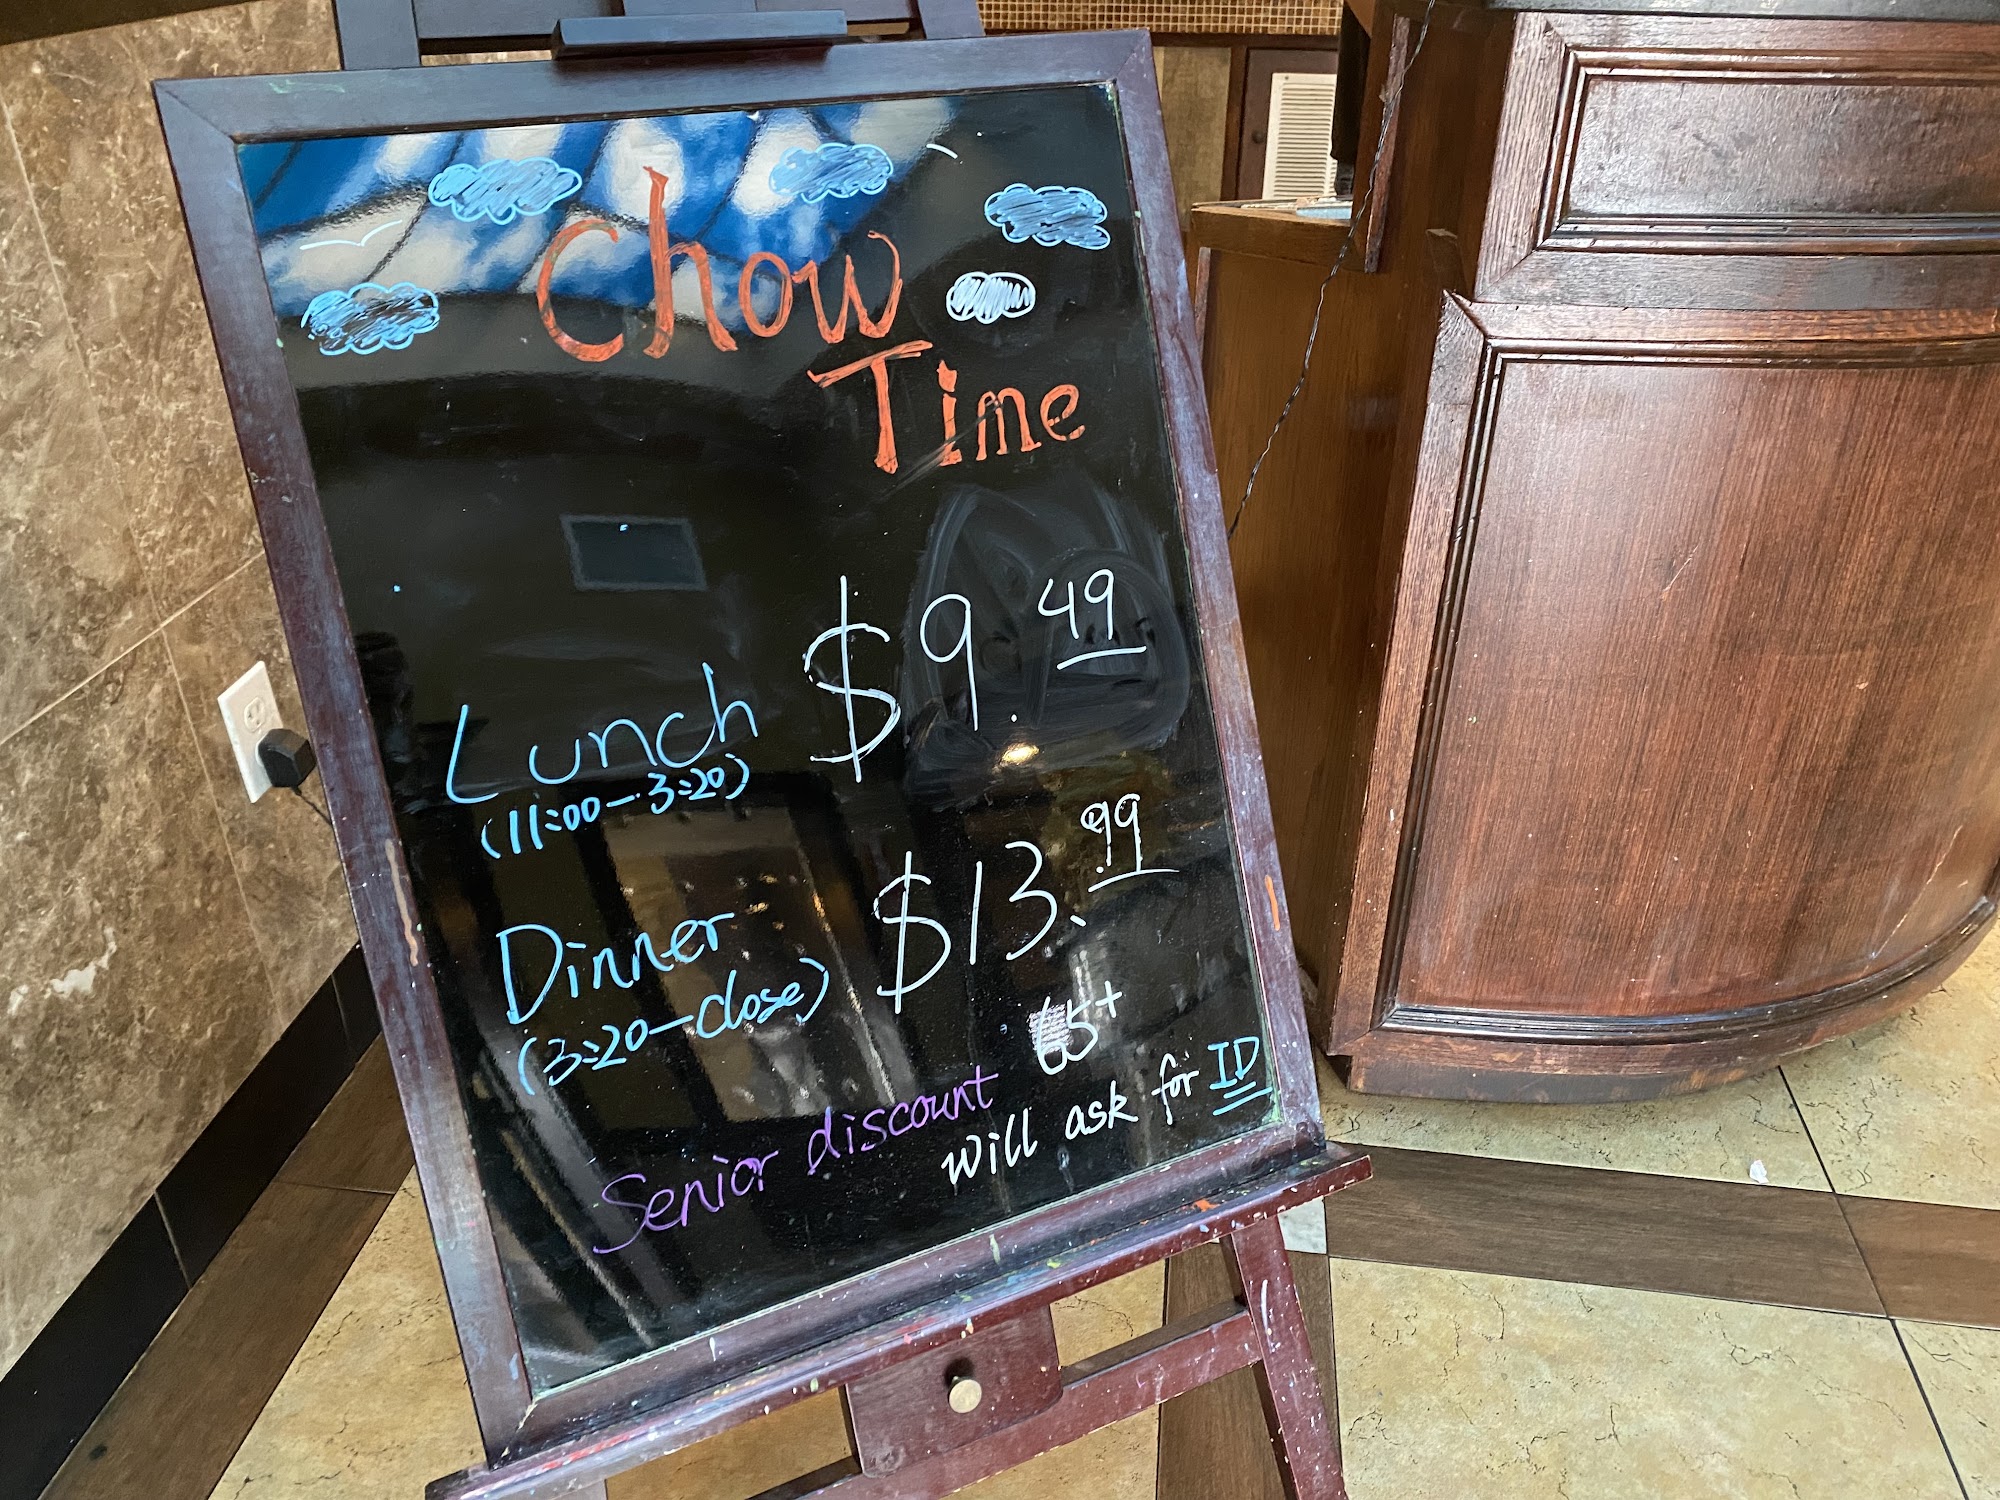 Chow
Time
Lunch $9.49
(11:00-3:20)
Dinner $13.99
(3:20-Close)
Senior discount 65+
Will ask for ID